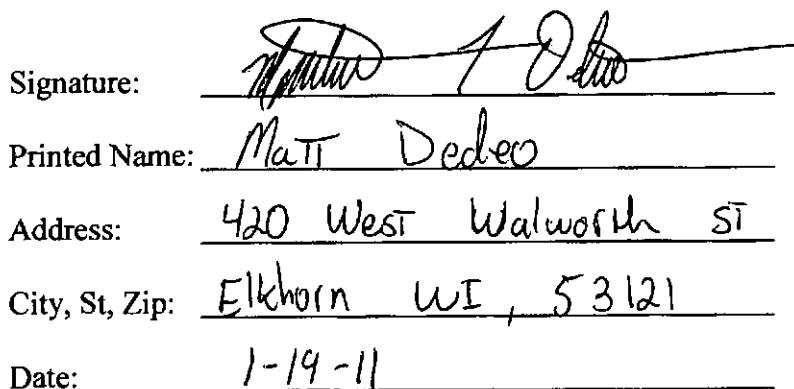 Signature:
Printed Name: Matt Dedeo
Address: 420 West Walworth ST
City, St, Zip: Elkhorn WI, 53121
Date: 1-19-11